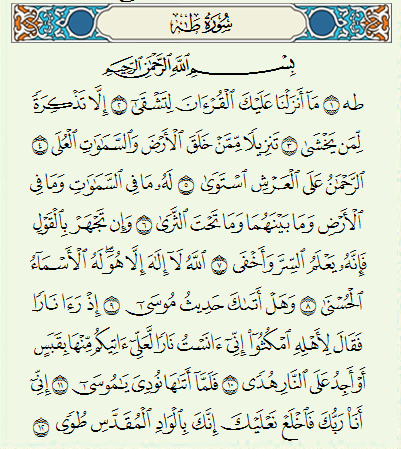 سُورَةُ طه
بِسْمِ ٱللَّهِ ٱلرَّحْمَٰنِ ٱلرَّحِيمِ
طه ١ مَآ أَنزَلْنَا عَلَيْكَ ٱلْقُرْءَانَ لِتَشْقَىٰٓ ٢ إِلَّا تَذْكِرَةً
لِّمَن يَخْشَىٰ ٣ تَنزِيلًا مِّمَّنْ خَلَقَ ٱلْأَرْضَ وَٱلسَّمَٰوَٰتِ ٱلْعُلَى ٤
ٱلرَّحْمَٰنُ عَلَى ٱلْعَرْشِ ٱسْتَوَىٰ ٥ لَهُۥ مَا فِى ٱلسَّمَٰوَٰتِ وَمَا فِى
ٱلْأَرْضِ وَمَا بَيْنَهُمَا وَمَا تَحْتَ ٱلثَّرَىٰ ٦ وَإِن تَجْهَرْ بِٱلْقَوْلِ
فَإِنَّهُۥ يَعْلَمُ ٱلسِّرَّ وَأَخْفَى ٧ ٱللَّهُ لَآ إِلَٰهَ إِلَّا هُوَ ۖ لَهُ ٱلْأَسْمَآءُ
ٱلْحُسْنَىٰ ٨ وَهَلْ أَتَىٰكَ حَدِيثُ مُوسَىٰٓ ٩ إِذْ رَءَا نَارًا
فَقَالَ لِأَهْلِهِ ٱمْكُثُوٓا۟ إِنِّىٓ ءَانَسْتُ نَارًا لَّعَلِّىٓ ءَاتِيكُم مِّنْهَا بِقَبَسٍ
أَوْ أَجِدُ عَلَى ٱلنَّارِ هُدًى ١٠ فَلَمَّآ أَتَىٰهَا نُودِىَ يَٰمُوسَىٰٓ ١١ إِنِّىٓ
أَنَا۠ رَبُّكَ فَٱخْلَعْ نَعْلَيْكَ ۖ إِنَّكَ بِٱلْوَادِ ٱلْمُقَدَّسِ طُوًى ١٢